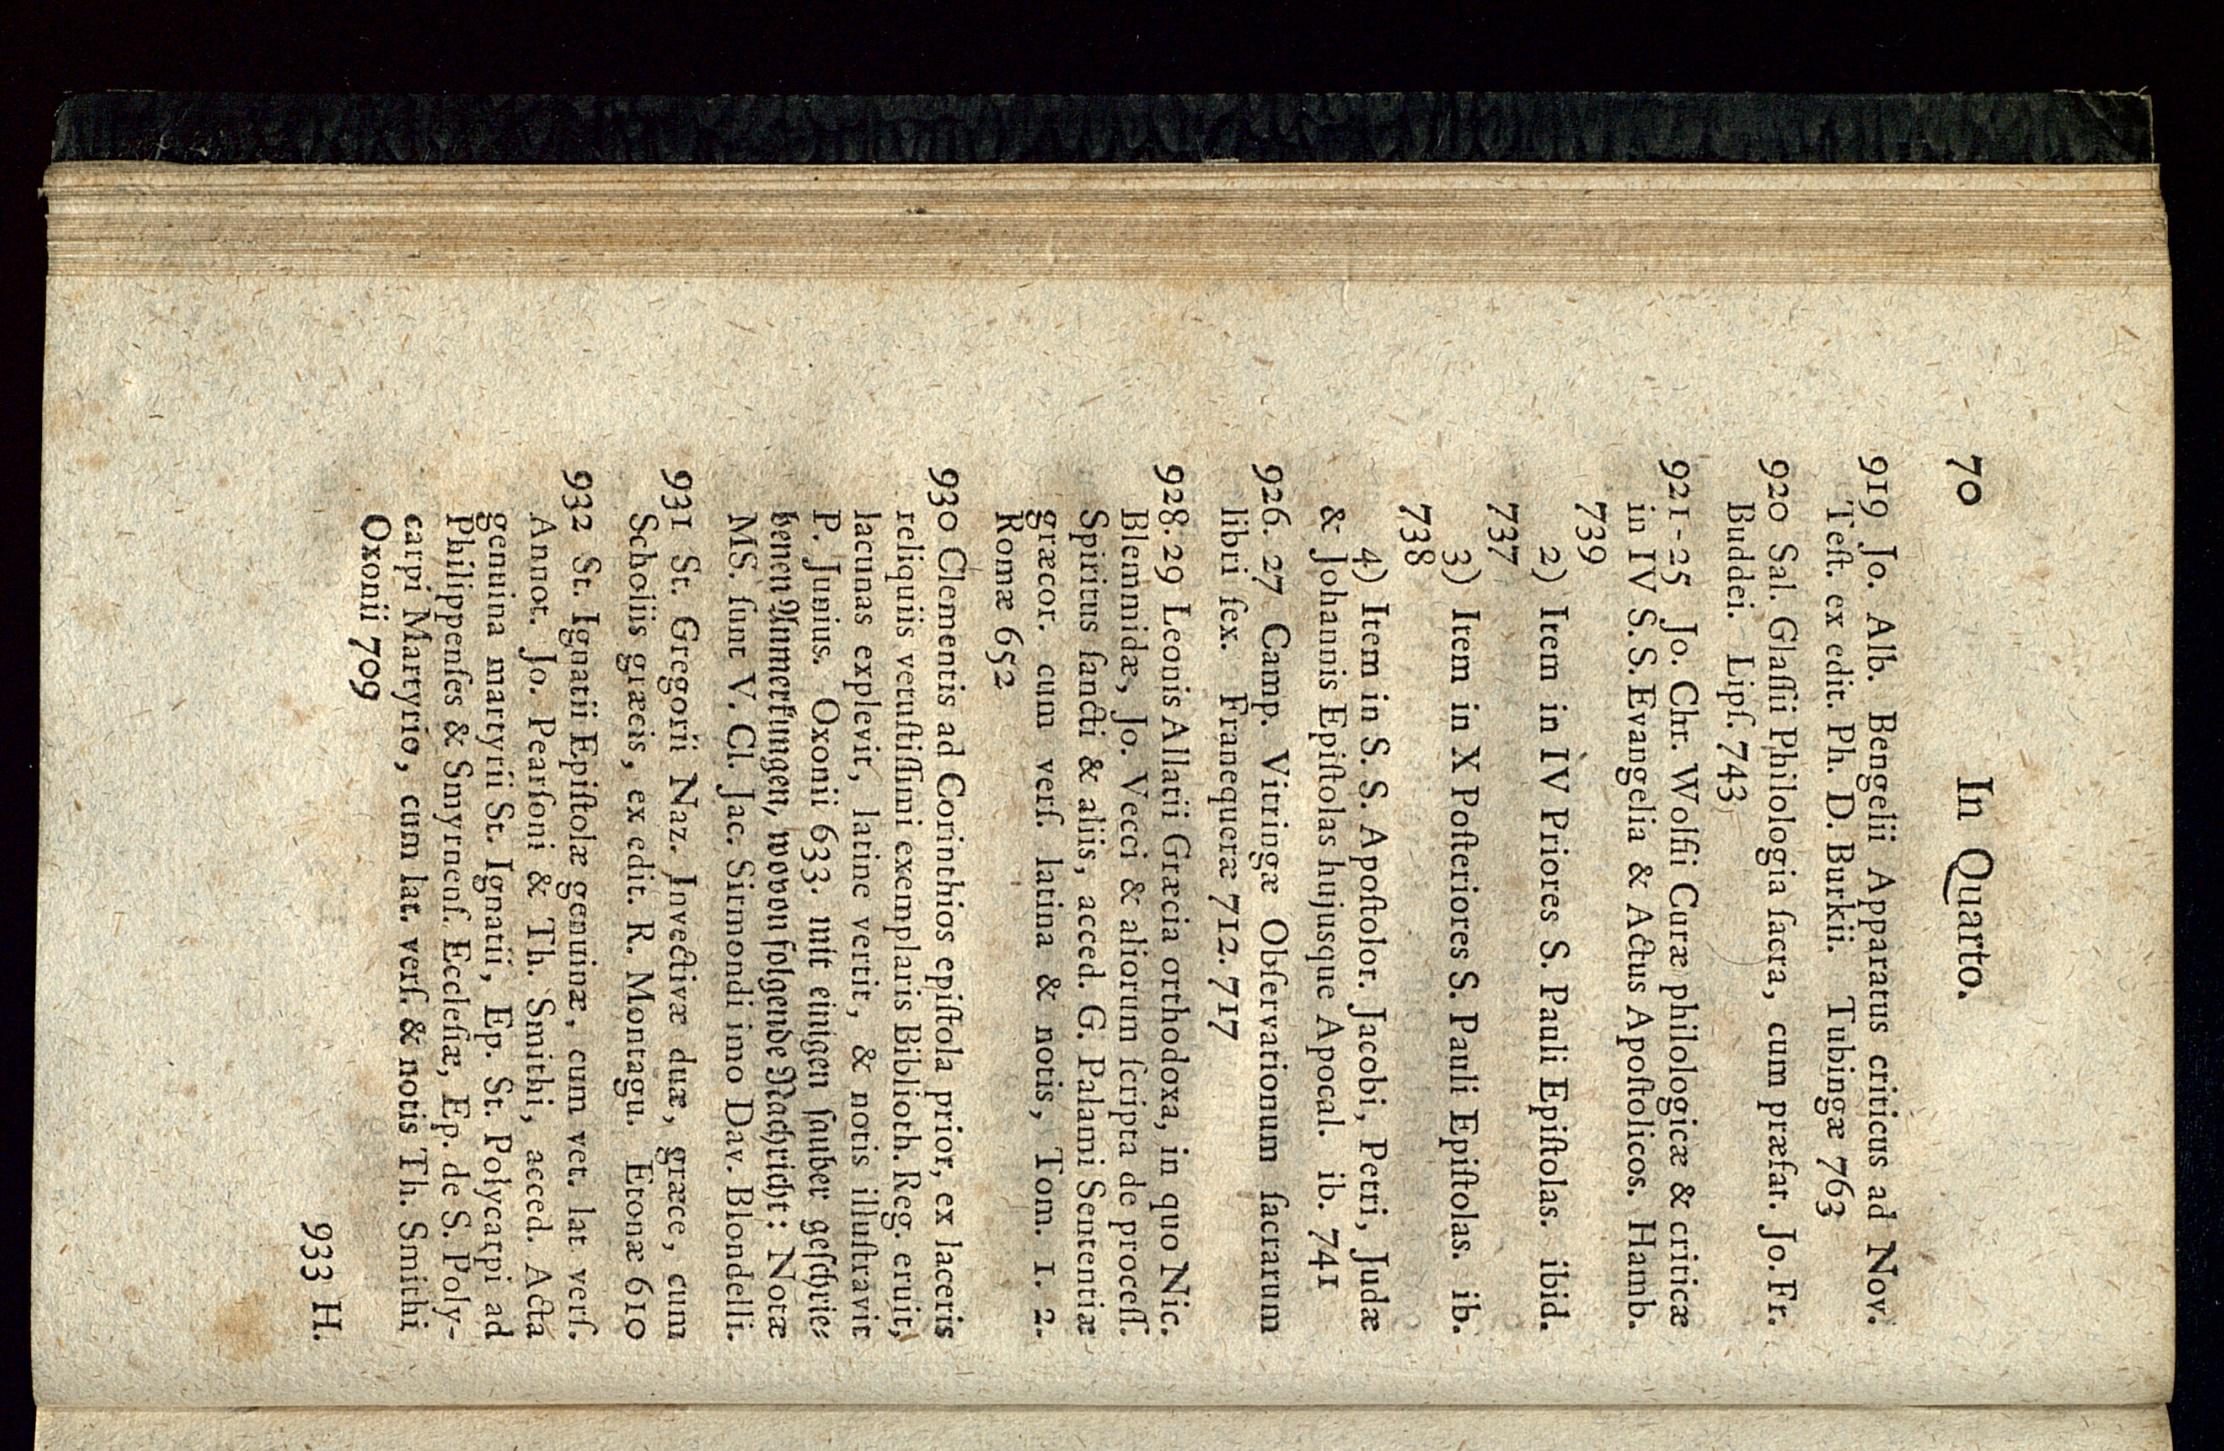 70 In Quarto.
919 Jo. Alb. Bengelii Apparatus criticus ad Nov.
Teſt. ex edit. Ph. D. Burkii. Tubingæ 763
920 Sal. Glaſſii Philologia ſacra, cum præfat. Jo. Fr.
Buddei. Lipſ. 743
921-25 Jo. Chr. Wolfii Curæ philologicæ & criticæ
in IV S. S. Evangelia & Actus Apoſtolicos. Hamb.
739
2) Item in IV Priores S. Pauli Epiſtolas. ibid.
737
3) Item in X Poſteriores S. Pauli Epiſtolas. ib.
738
4) Item in S. S. Apoſtolor. Jacobi, Petri, Judæ
& Johannis Epiſtolas hujusque Apocal. ib. 741
926. 27 Camp. Vitringæ Obſervationum ſacrarum
libri ſex. Franequeræ 712. 717
928. 29 Leonis Allatii Græcia orthodoxa, in quo Nic.
Blemmidæ, Jo. Vecci & aliorum ſcripta de proceſſ.
Spiritus ſancti & aliis, acced. G. Palami Sententiæ
græcor. cum verſ. latina & notis, Tom. 1. 2.
Romæ 652
930 Clementis ad Corinthios epiſtola prior, ex laceris
reliquiis vetuſtiſſimi exemplaris Biblioth. Reg. eruit,
lacunas explevit, latine vertit, & notis illuſtravit
P. Junius. Oxonii 633. mit einigen ſauber geſchrie-
benen Anmerkungen, wovon folgende Nachricht: Notæ
MS. ſunt V. Cl. Jac. Sirmondi imo Dav. Blondelli.
931 St. Gregorii Naz. Invectivæ duæ, græce, cum
Scholiis græcis, ex edit. R. Montagu. Etonæ 610
932 St. Ignatii Epiſtolæ genuinæ, cum vet. lat verſ.
Annot. Jo. Pearſoni & Th. Smithi, acced. Acta
genuina martyrii St. Ignatii, Ep. St. Polycarpi ad
Philippenſes & Smyrnenſ. Eccleſiæ, Ep. de S. Poly-
carpi Martyrio, cum lat. verſ. & notis Th. Smithi
Oxonii 709
933 H.